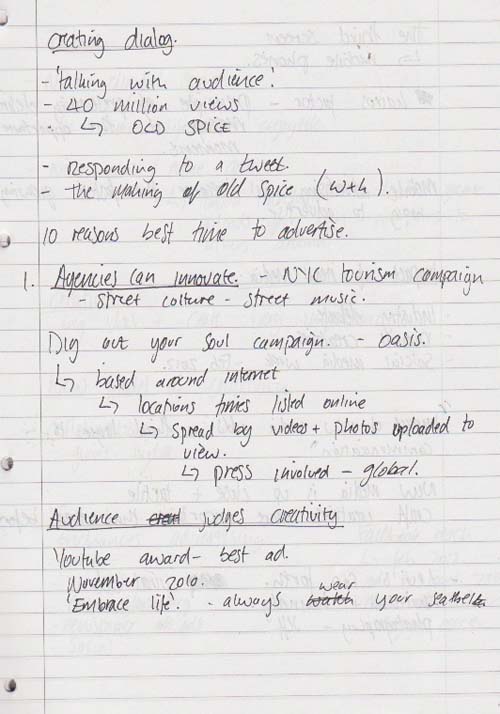 crating dialog.
- 'talking with audience'.
- 40 million views
↳ OLD SPICE
- responding to a tweet.
- the making of old spice (w+k).
10 reasons best time to advertise.
1. Agencies can innovate. - NYC tourism campaign
- street culture - street music.
Dig out your soul campaign - oasis.
↳ based around internet
↳ locations times listed online
↳ spread by videos + photos uploaded to
view.
↳ press involved - global.
Audience judges creativity
Youtube award - best ad.
November 2010.
'Embrace life'. - always watch wear your seatbelt